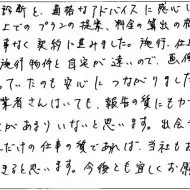 診断と、適格なアドバイスに感心し
上でのプランの提案、料金の算出の
事なく契約に進みました。施行、仕上
施行物件と自宅が遠いので、画像
っていたのも安心につながりました
業者さんはいても、報告の質にもカ
とがあまりいないと思います。出会
だけの仕事の質であれば、当社もお
きると思います。今後とも宜しくお願